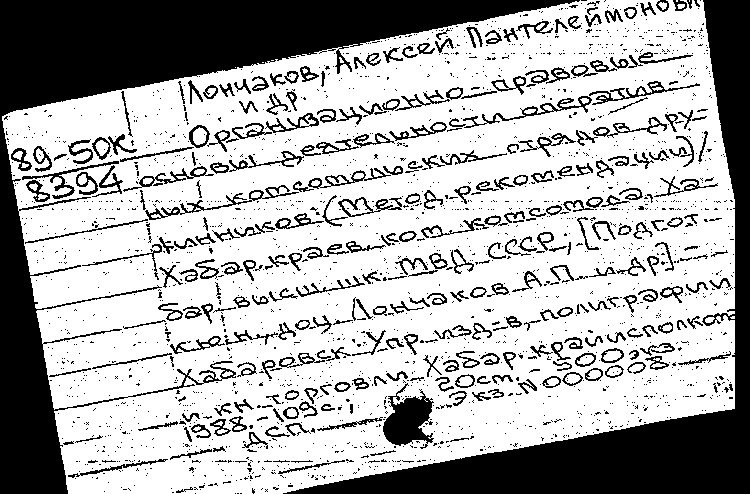 Лончаков, Алексей Пантелеймонович
и др.
89-50К
8394
Организационно-правовые
основы деятельности оператив-
ных комсомольских отрядов дру-
жинников: (Метод. рекомендации) /
Хабар. краев. ком. комсомола, Ха-
бар. высш. шк. МВД СССР; [Подгот.
к.ю.н., доц. Лончаков А.П. и др.] -
Хабаровск: Упр. изд-в, полиграфии
и кн. торговли Хабар. крайисполкома
1988. - 109 с.; 20 см. - 500 экз.
ДСП. Экз. N 000008.